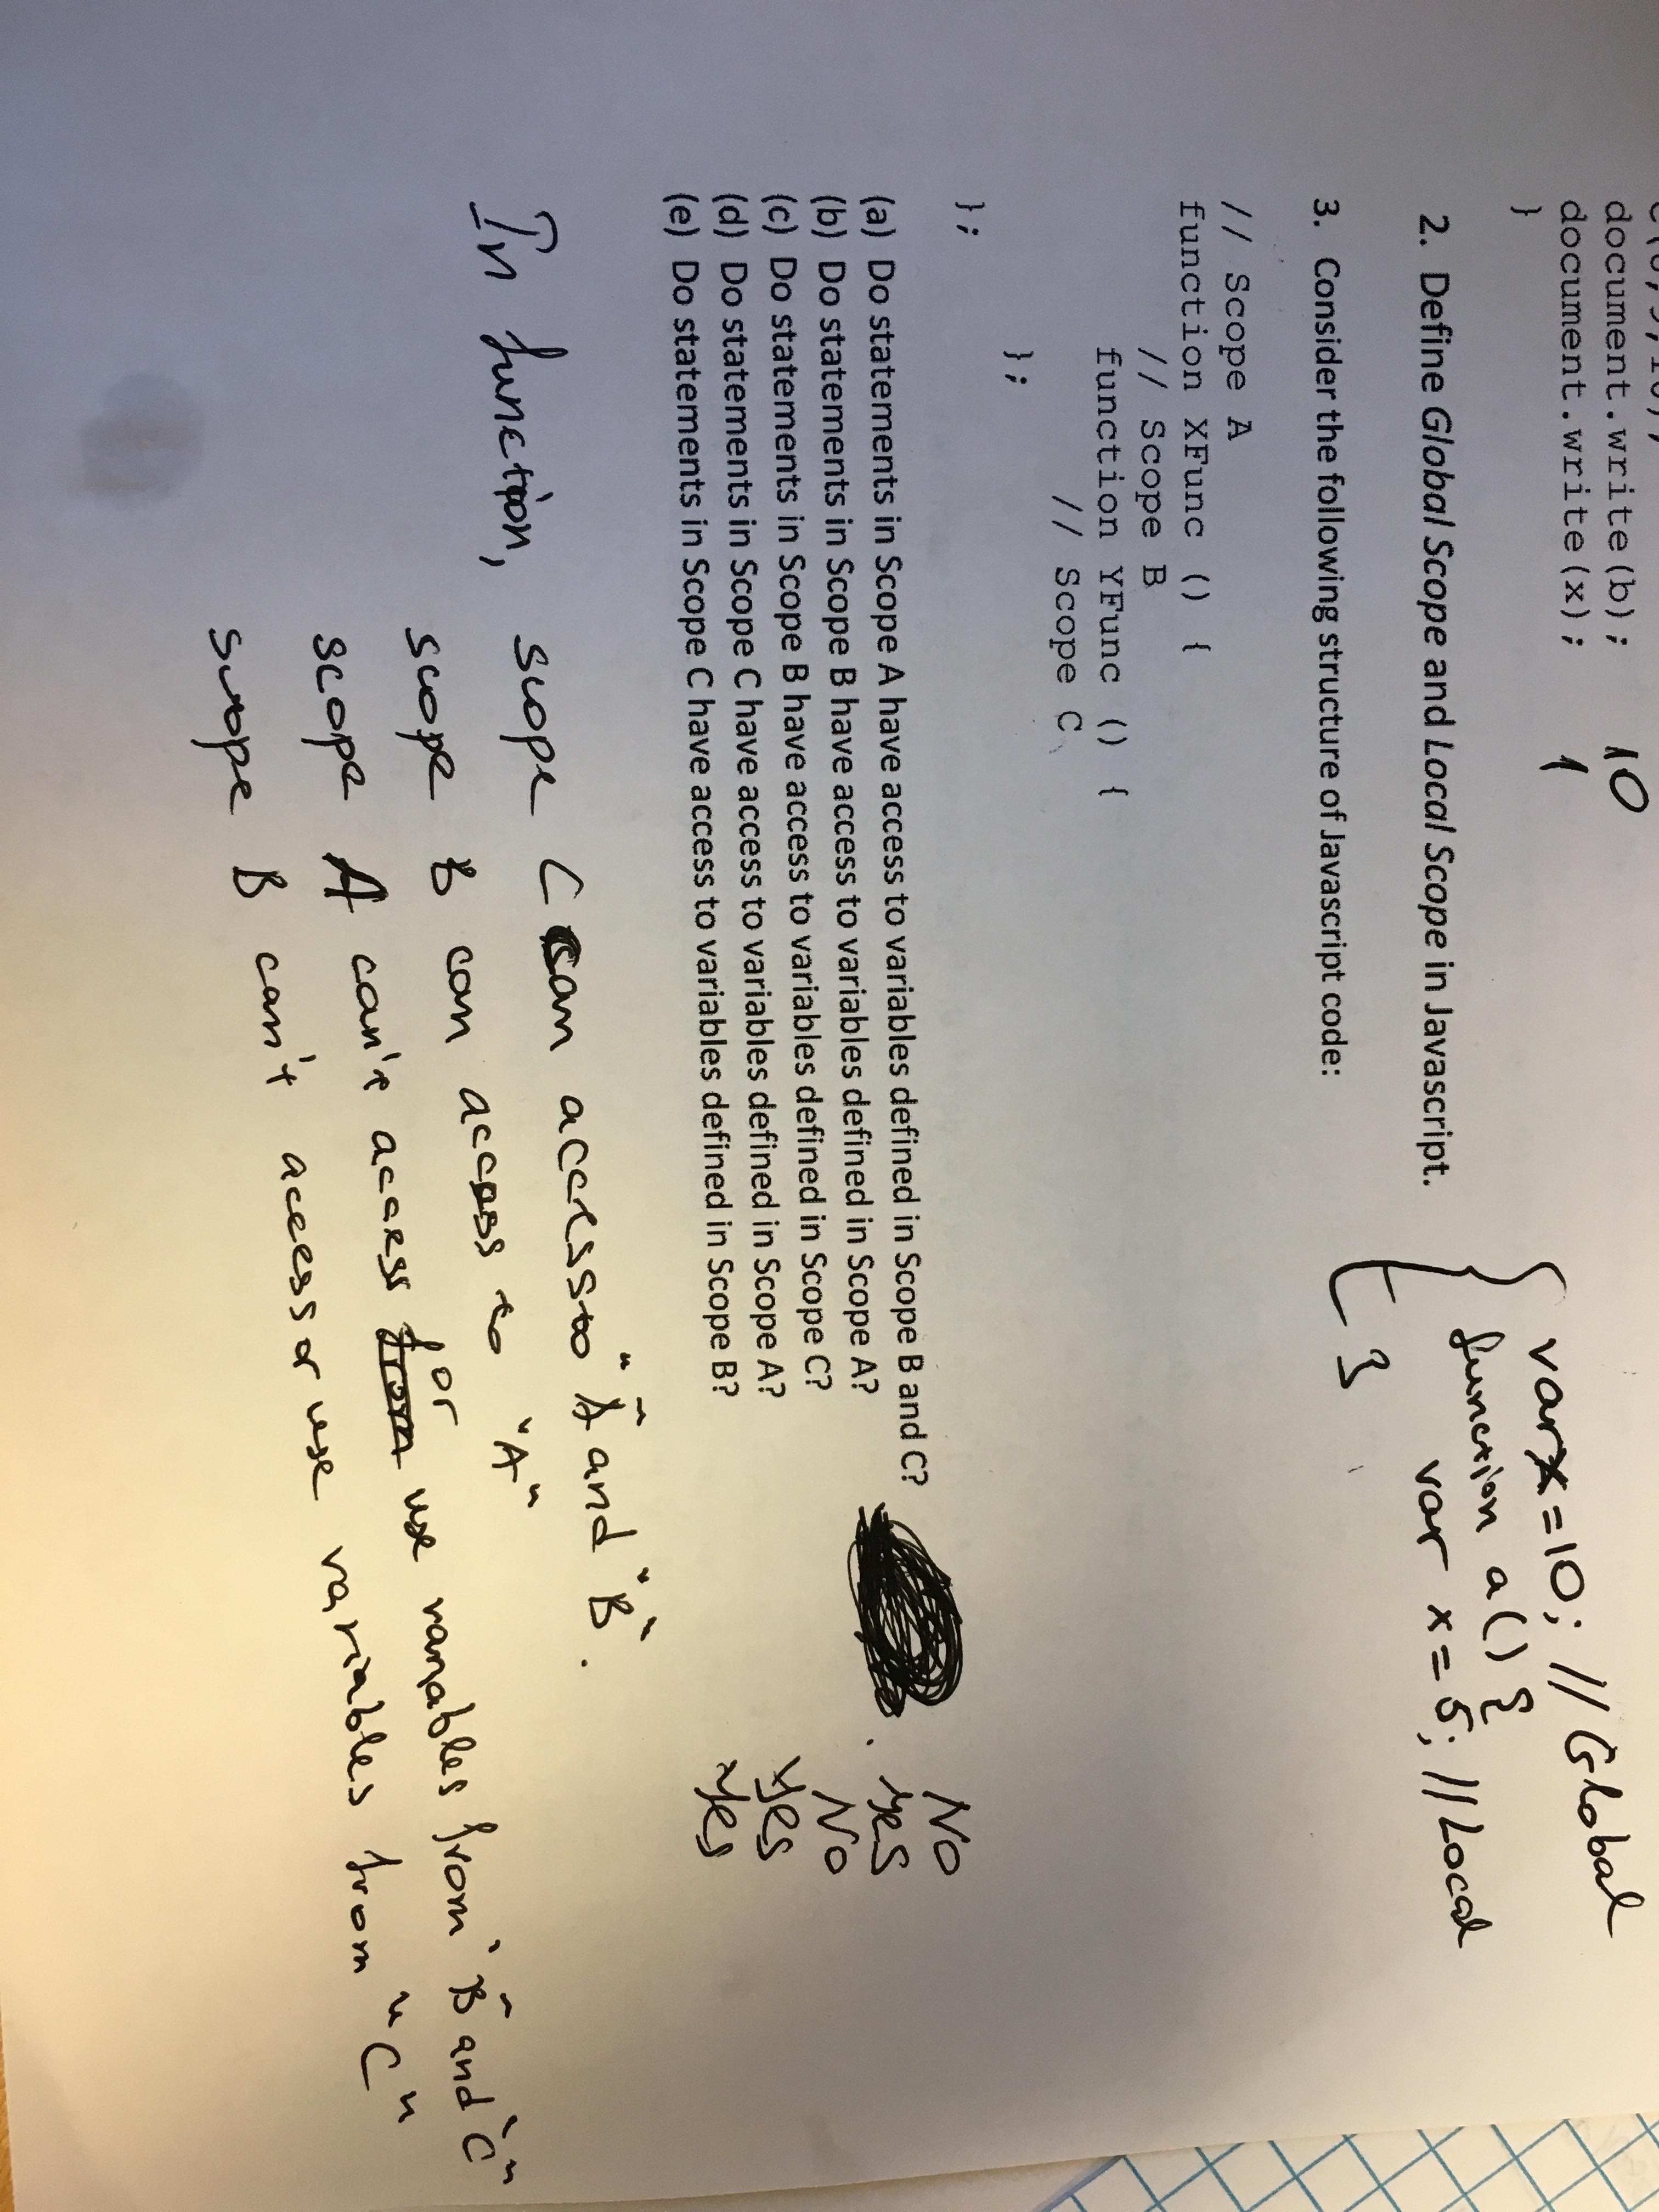 document.write(b); 10
document.write(x); 1
}
var x=10; // Global
function a() {
var x=5; // Local
}
2. Define Global Scope and Local Scope in Javascript.
3. Consider the following structure of Javascript code:
// Scope A
function XFunc () {
// Scope B
function YFunc () {
// Scope C
};
};
(a) Do statements in Scope A have access to variables defined in Scope B and C? No
(b) Do statements in Scope B have access to variables defined in Scope A? Yes
(c) Do statements in Scope B have access to variables defined in Scope C? No
(d) Do statements in Scope C have access to variables defined in Scope A? Yes
(e) Do statements in Scope C have access to variables defined in Scope B? Yes
In function, scope C can access to "A" and "B".
scope B can access to "A"
scope A can't access or use variables from "B" and "C"
scope B can't access or use variables from "C"